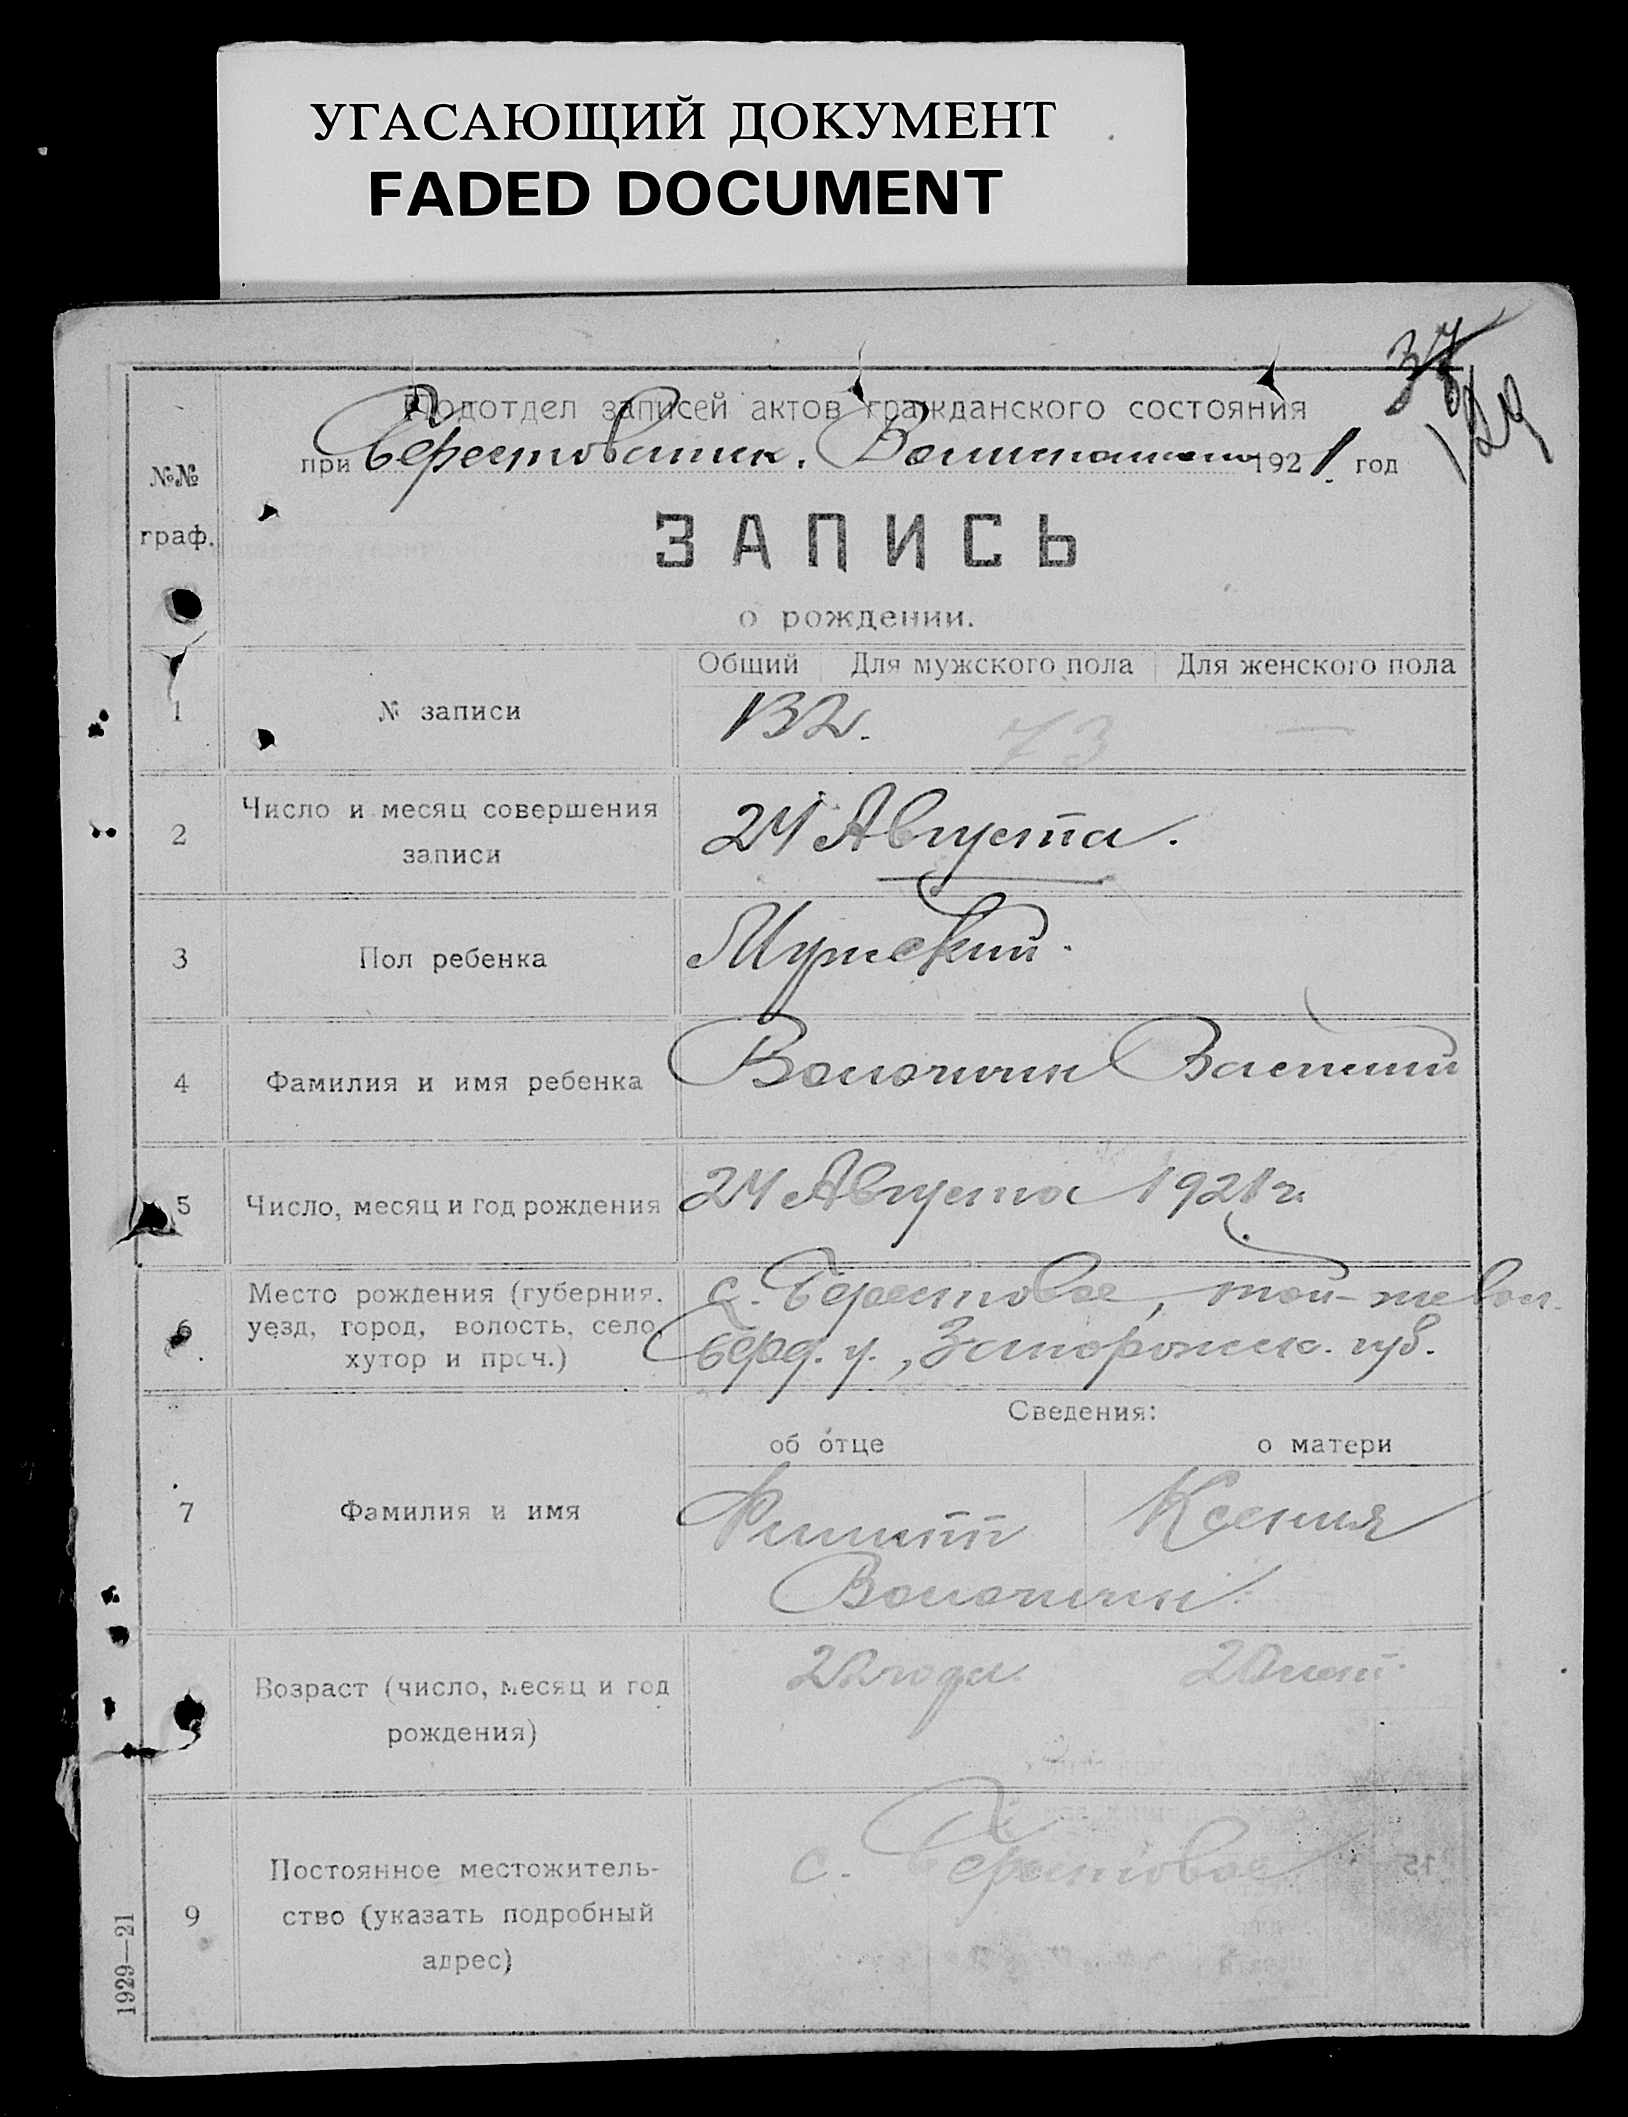 УГАСАЮЩИЙ ДОКУМЕНТ
FADED DOCUMENT
37
129
Подотдел записей актов гражданского состояния
при Берестоватск. Волисполкоме 1921 год
№№
граф.
ЗАПИСЬ
о рождении.
Общий Для мужского пола Для женского пола
1 № записи 132. 73 —
2 Число и месяц совершения
записи
24 Августа.
3 Пол ребенка Мужский.
4 Фамилия и имя ребенка Волочил Василий
5 Число, месяц и год рождения 24 Августа 1921 г.
6 Место рождения (губерния,
уезд, город, волость, село,
хутор и проч.)
с. Берестовое, той-же вол.
Берд. у., Запорожск. губ.
Сведения:
об отце о матери
7 Фамилия и имя Филипп Ксения
Возраст (число, месяц и год
рождения)
22 года. 20 лет.
9 Постоянное местожитель-
ство (указать подробный
адрес)
с. Берестовое
15
1929—21